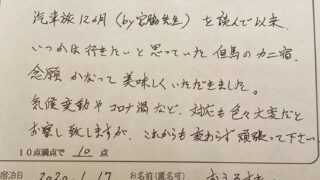 汽車旅12ヵ月(by宮脇先生)を読んで以来、
いつかは行きたいと思っていた但馬のカニ宿。
念願かなって美味しくいただきました。
気候変動やコロナ渦など、対応も色々大変だと
お察し致しますが、これからも変わらず頑張って下さい
10点満点で 10 点
宿泊日 1.17 お名前(匿名可)